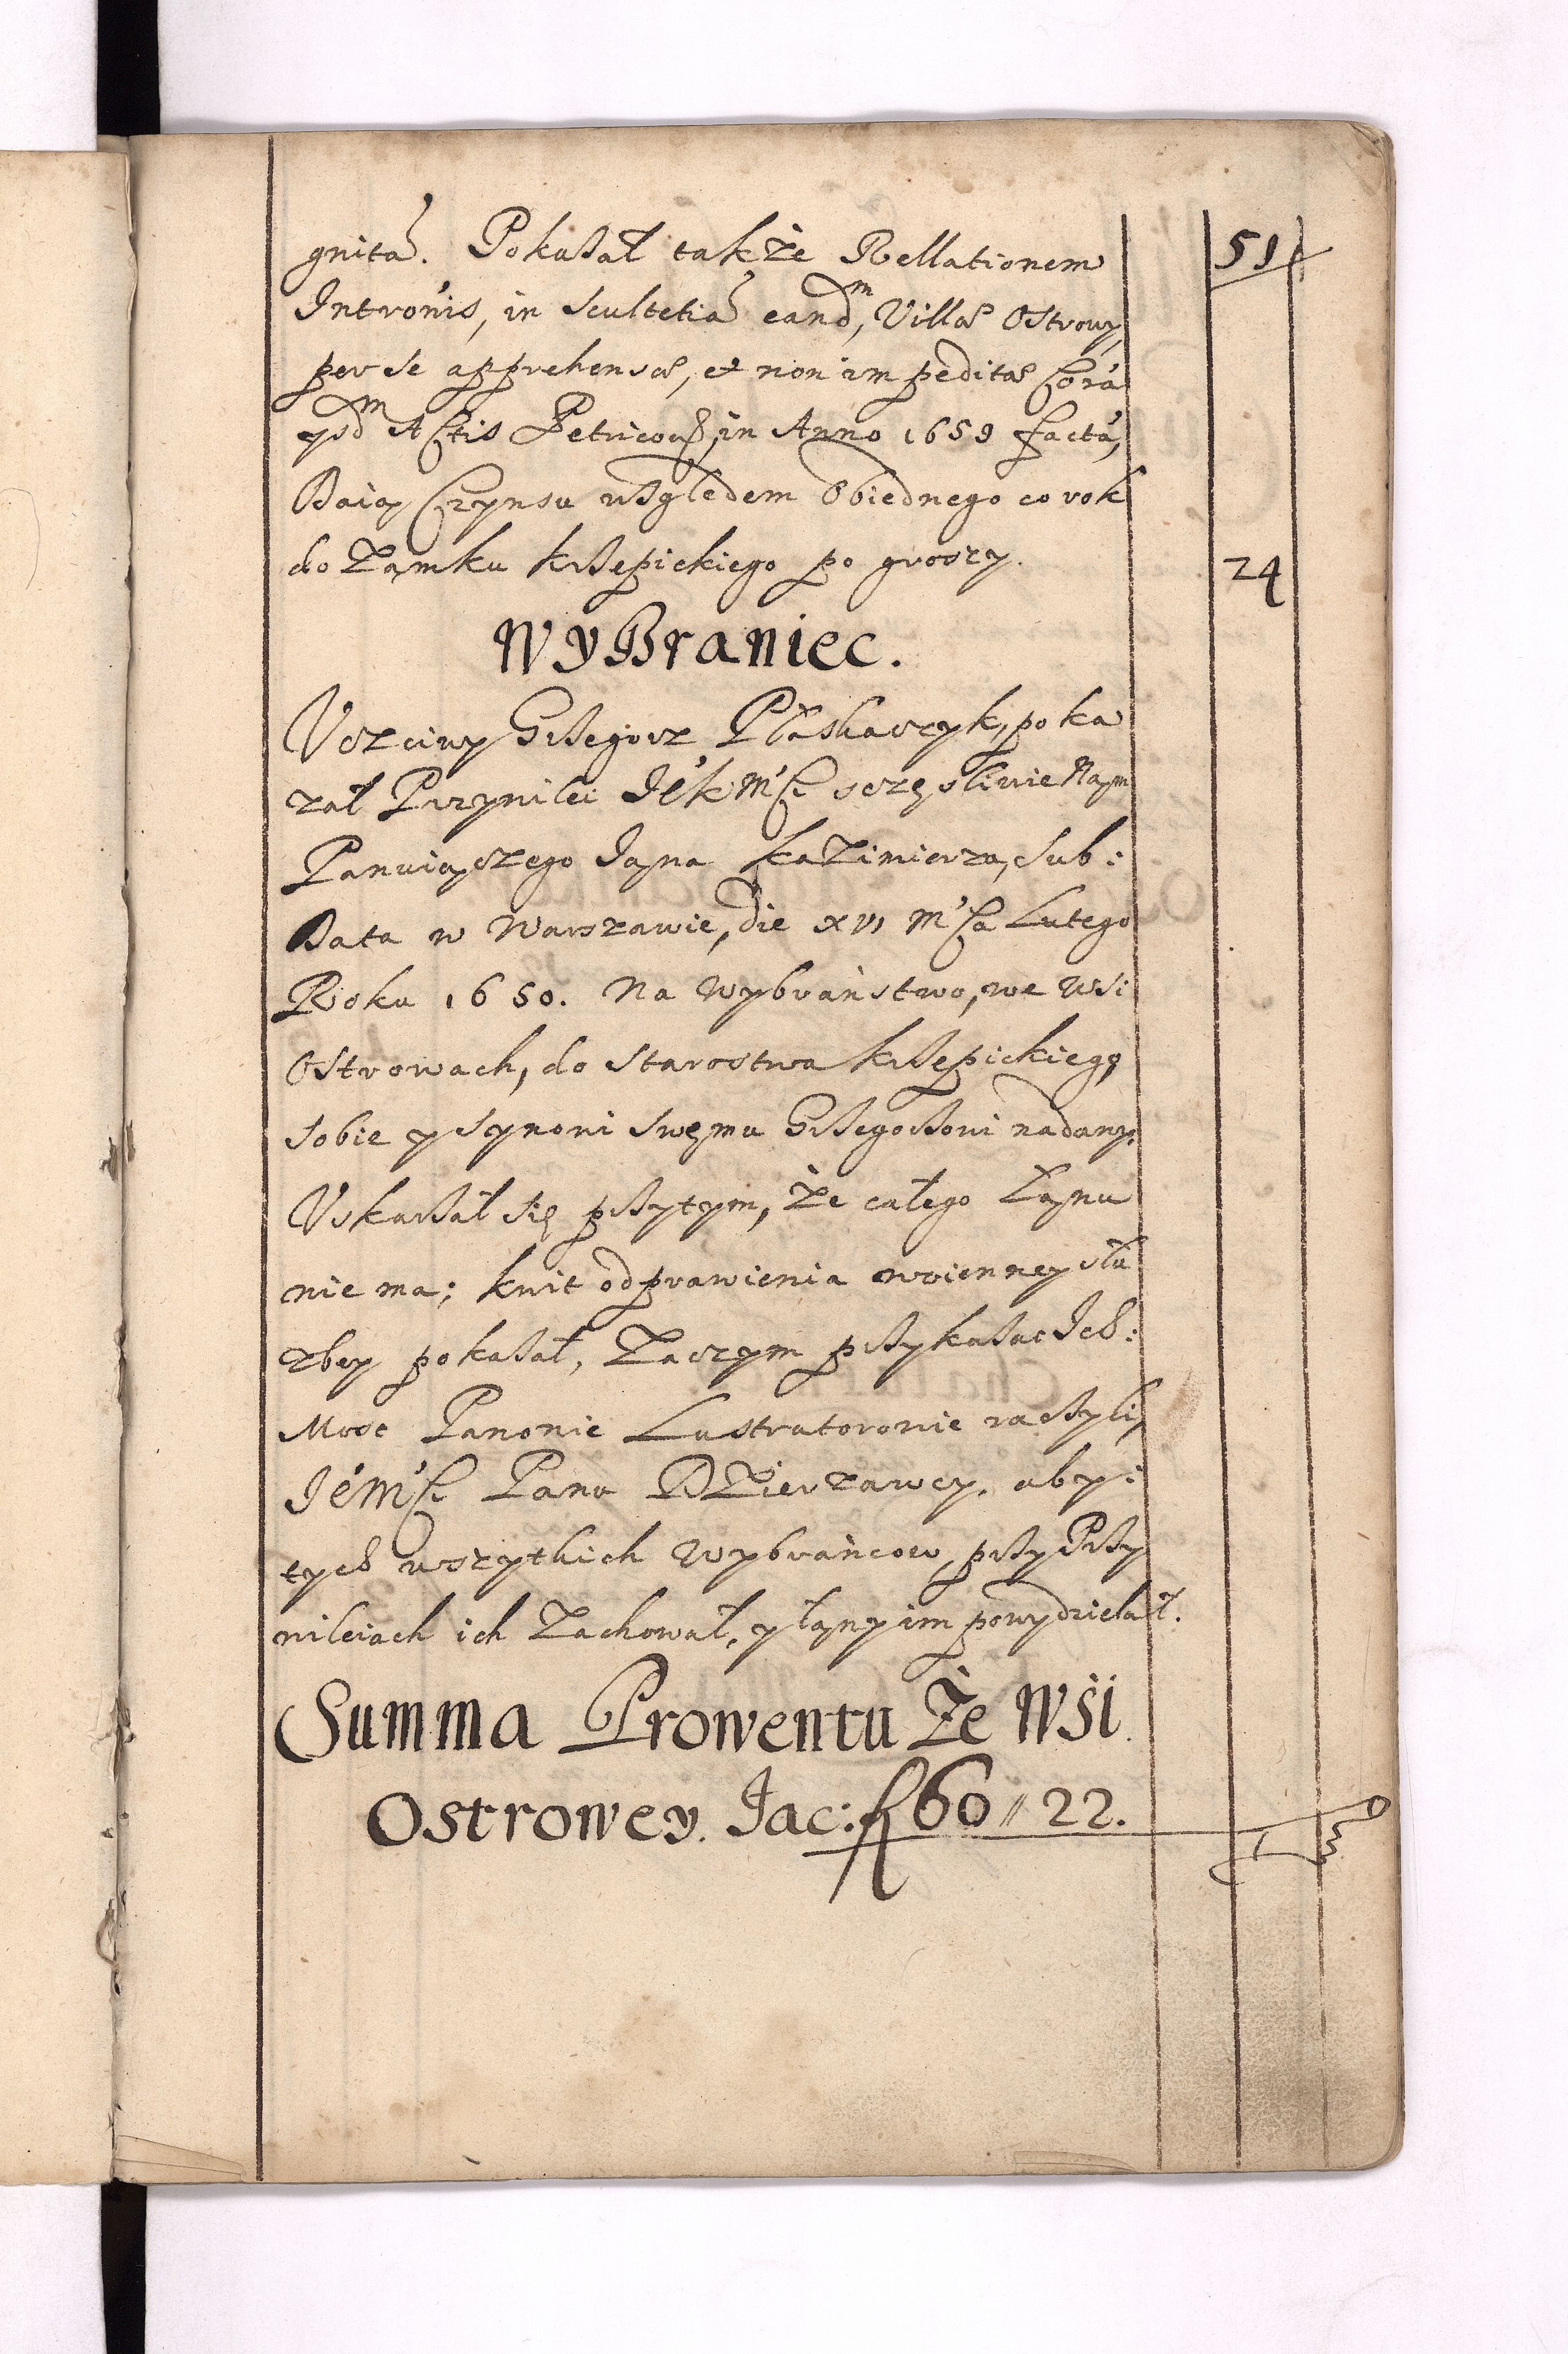 gnitã. Pokazał także Rellationem 51
Intrōnis, in Scultetiã eandᵐ, Villæ Ostrowy
per se apprehensæ, et non impeditæ Corã
ysdᵐ Actis Petricou, in Anno 1659 factã,
Daią Czynsu względem Obiednego co rok
do Zamku krzepickiego po groszy. 24
WyBraniec.
Vczciwy Grzegorz Płaskaczyk, poka
zał Przywilei JéK Mʼści szczęśliwie Nam
Panuiączego Jana Kazimierza, sub:
Data w Warszawie, die XVI Mʼca Lutego
Roku 1650. Na Wybraństwo, we wsi
Ostrowach, do Starostwa krzepickiego
sobie y synowi swemu Grzegorzowi nadany.
Vskarżał się przytym, że całego Łanu
nie ma; kwit odprawienia woienney słu
zbey pokazał, Zaczym przykazac Ich:
Mość Panowie Lustratorowie raczyli,
JéMʼści Panu Dzierzawcy. aby:
tych wszytkich Wybrańcow, przy Przy
wileiach ich Zachował, y łany im powydzielał.
Summa Prowentu Że Wsi
Ostrowey. Jac: fl 60 // 22.